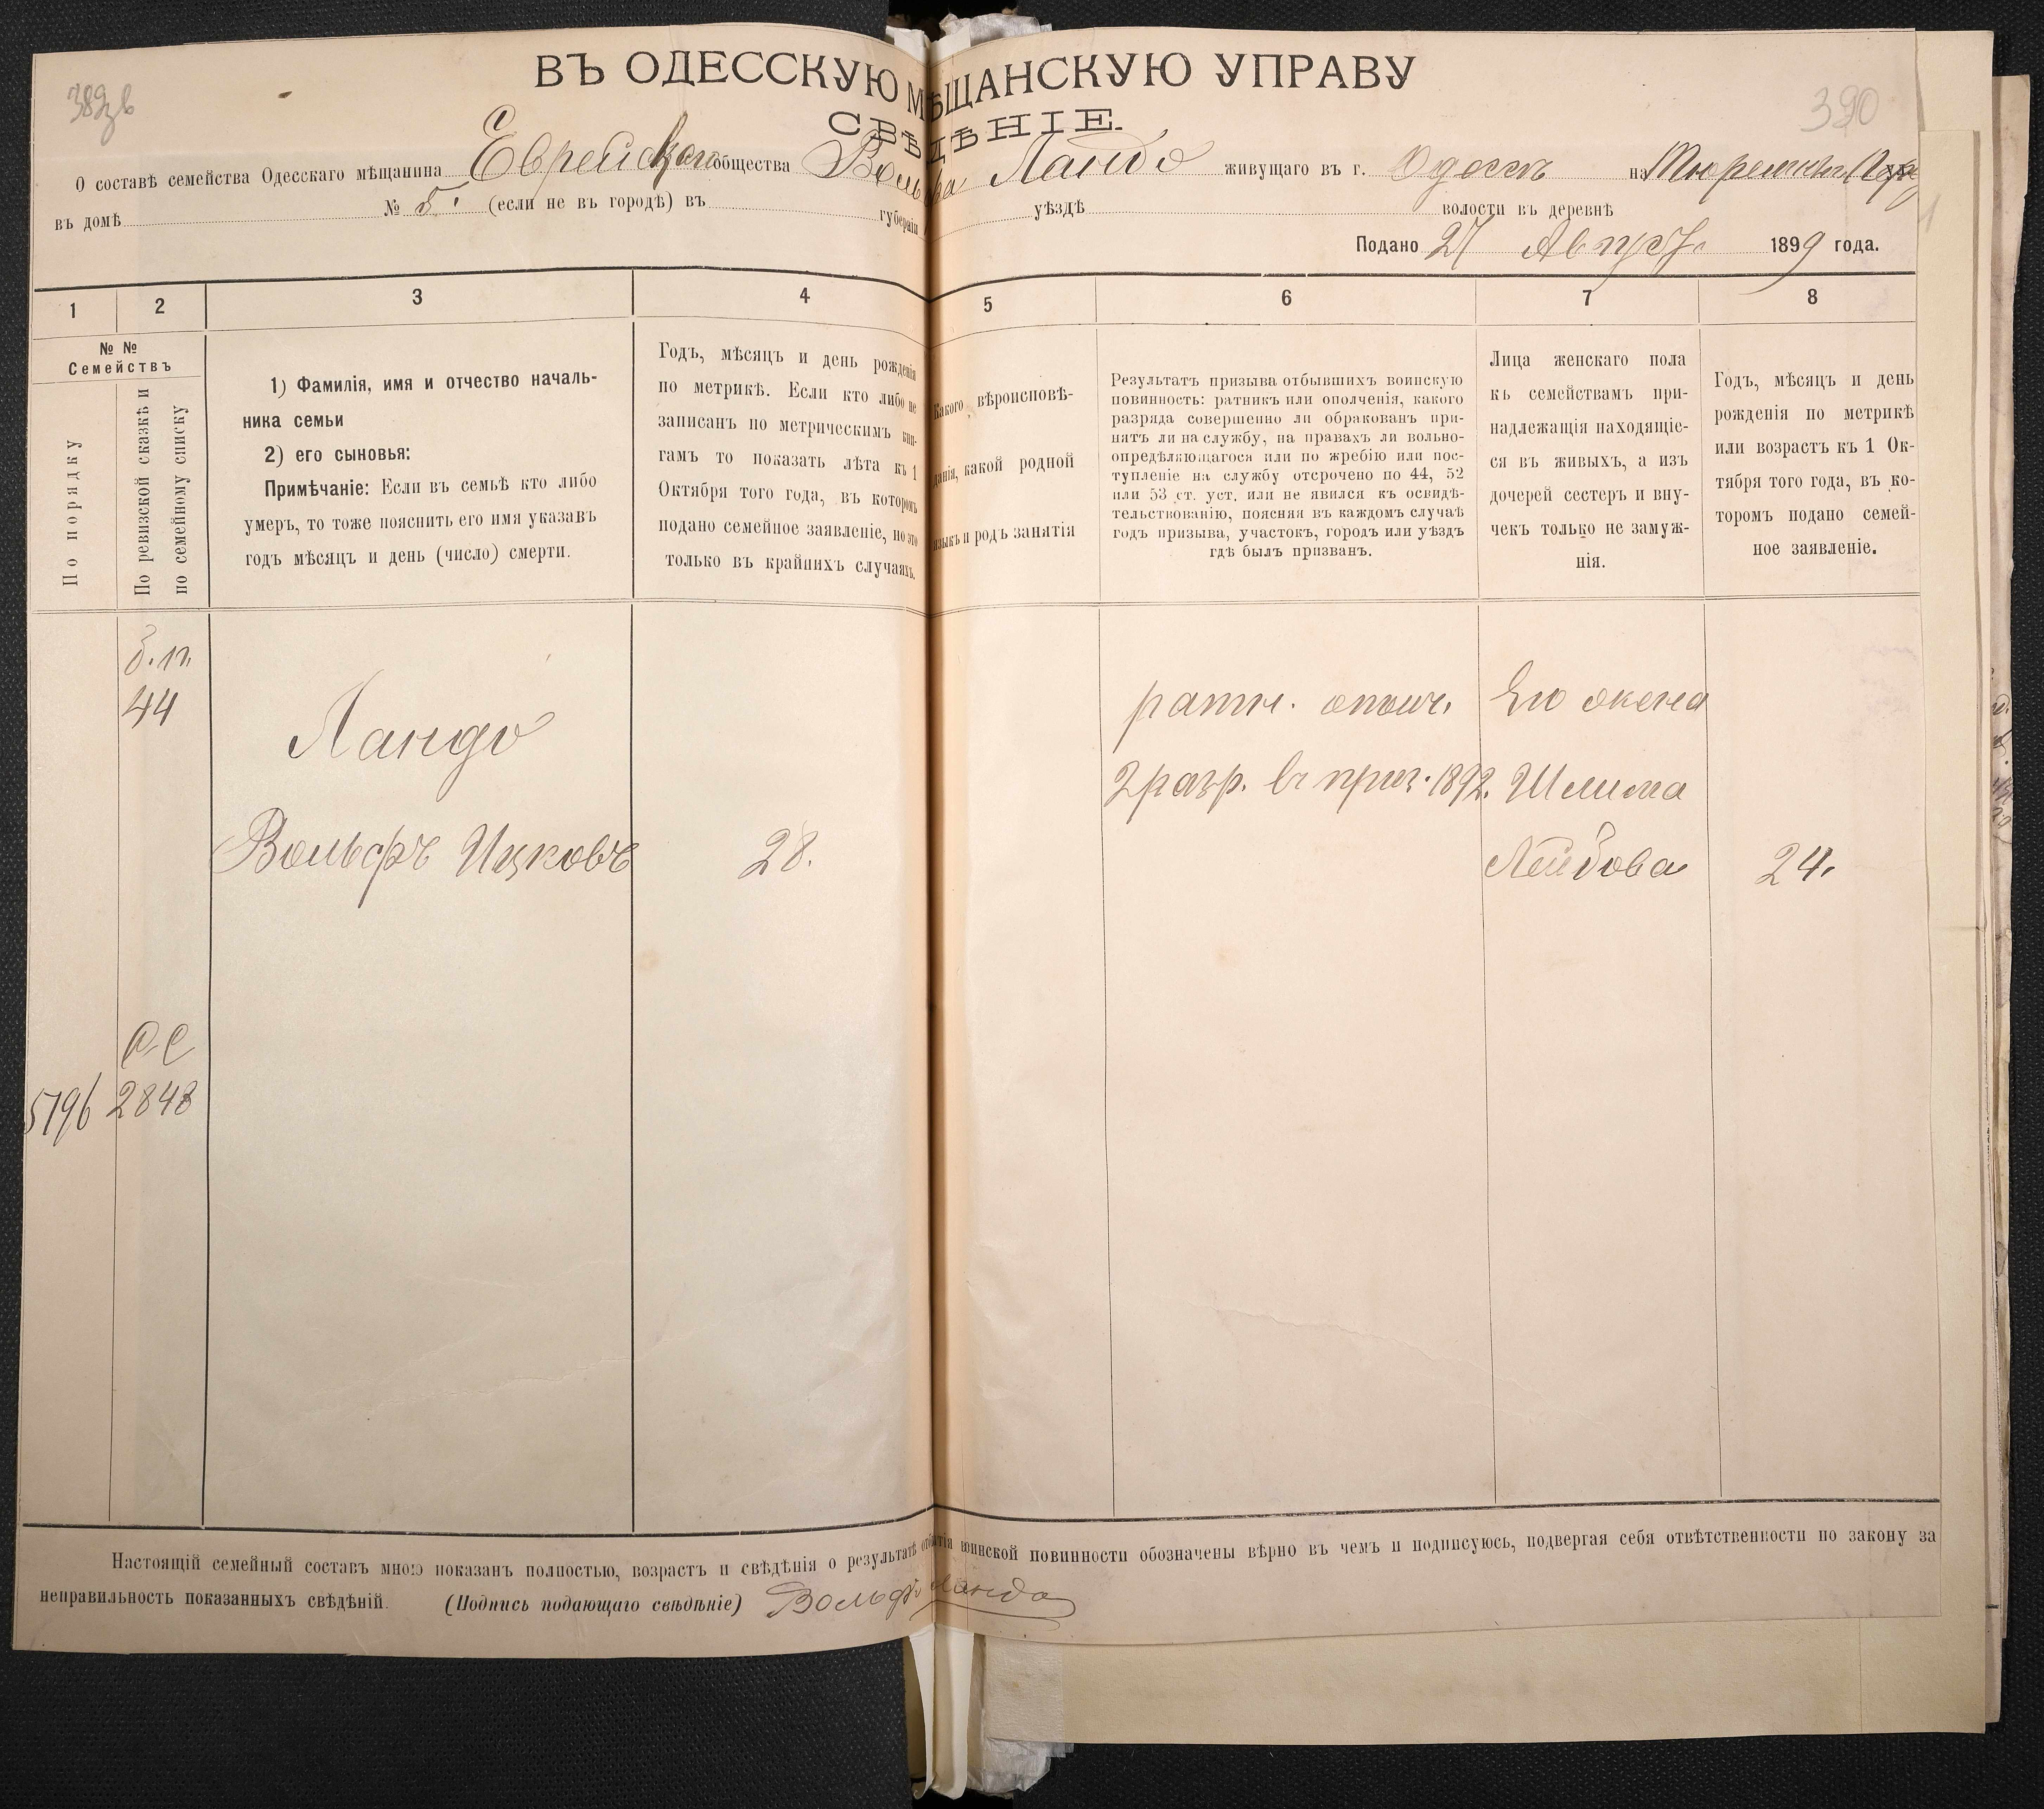 ВЪ ОДЕССКУЮ МѢЩАНСКУЮ УПРАВУ
390
СВѢДѢНІЕ.
О составѣ семейства Одесскаго мѣщанина Еврейскаго общества Вольфа Ландо живущаго въ г. Одессѣ на Тюремный
въ домѣ № 5. (если не въ городѣ) въ губерніи уѣздѣ волости въ деревнѣ
Подано 27 Август. 1899 года.
1 2 3 4 5 6 7 8
№ №
Семействъ
По порядку
По ревизской сказкѣ и
по семейному списку
1) Фамилія, имя и отчество началь-
ника семьи
2) его сыновья:
Примѣчаніе: Если въ семьѣ кто либо
умеръ, то тоже пояснить его имя указавъ
годъ мѣсяцъ и день (число) смерти.
Годъ, мѣсяцъ и день рожденія
по метрикѣ. Если кто либо не
записанъ по метрическимъ кни-
гамъ то показать лѣта къ 1
Октября того года, въ которомъ
подано семейное заявленіе, но это
только въ крайнихъ случаяхъ.
Какого вѣроисповѣ-
данія, какой родной
языкъ и родъ занятія
Результатъ призыва отбывшихъ воинскую
повинность: ратникъ или ополченія, какого
разряда совершенно ли обракованъ при-
нятъ ли на службу, на правахъ ли вольно-
опредѣляющагося или по жребію или пос-
тупленіе на службу отсрочено по 44, 52
или 53 ст. уст. или не явился къ освидѣ-
тельствованію, поясняя въ каждомъ случаѣ
годъ призыва, участокъ, городъ или уѣздъ
гдѣ былъ призванъ.
Лица женскаго пола
къ семействамъ при-
надлежащія находящіе-
ся въ живыхъ, а изъ
дочерей сестеръ и вну-
чекъ только не замуж-
нія.
Годъ, мѣсяцъ и день
рожденія по метрикѣ
или возрастъ къ 1 Ок-
тября того года, въ ко-
торомъ подано семей-
ное заявленіе.
б.п.
44
Ландо
Вольфъ Ицковъ
28.
ратн. ополч.
2 разр. въ приз. 1892.
Его жена
Шлима
Лейбова
24.
5796 2848
Настоящій семейный составъ мною показанъ полностью, возрастъ и свѣдѣнія о результатѣ отбытія воинской повинности обозначены вѣрно въ чемъ и подписуюсь, подвергая себя отвѣтственности по закону за
неправильность показанныхъ свѣдѣній. (Подпись подающаго свѣдѣніе) Вольфъ Ландо